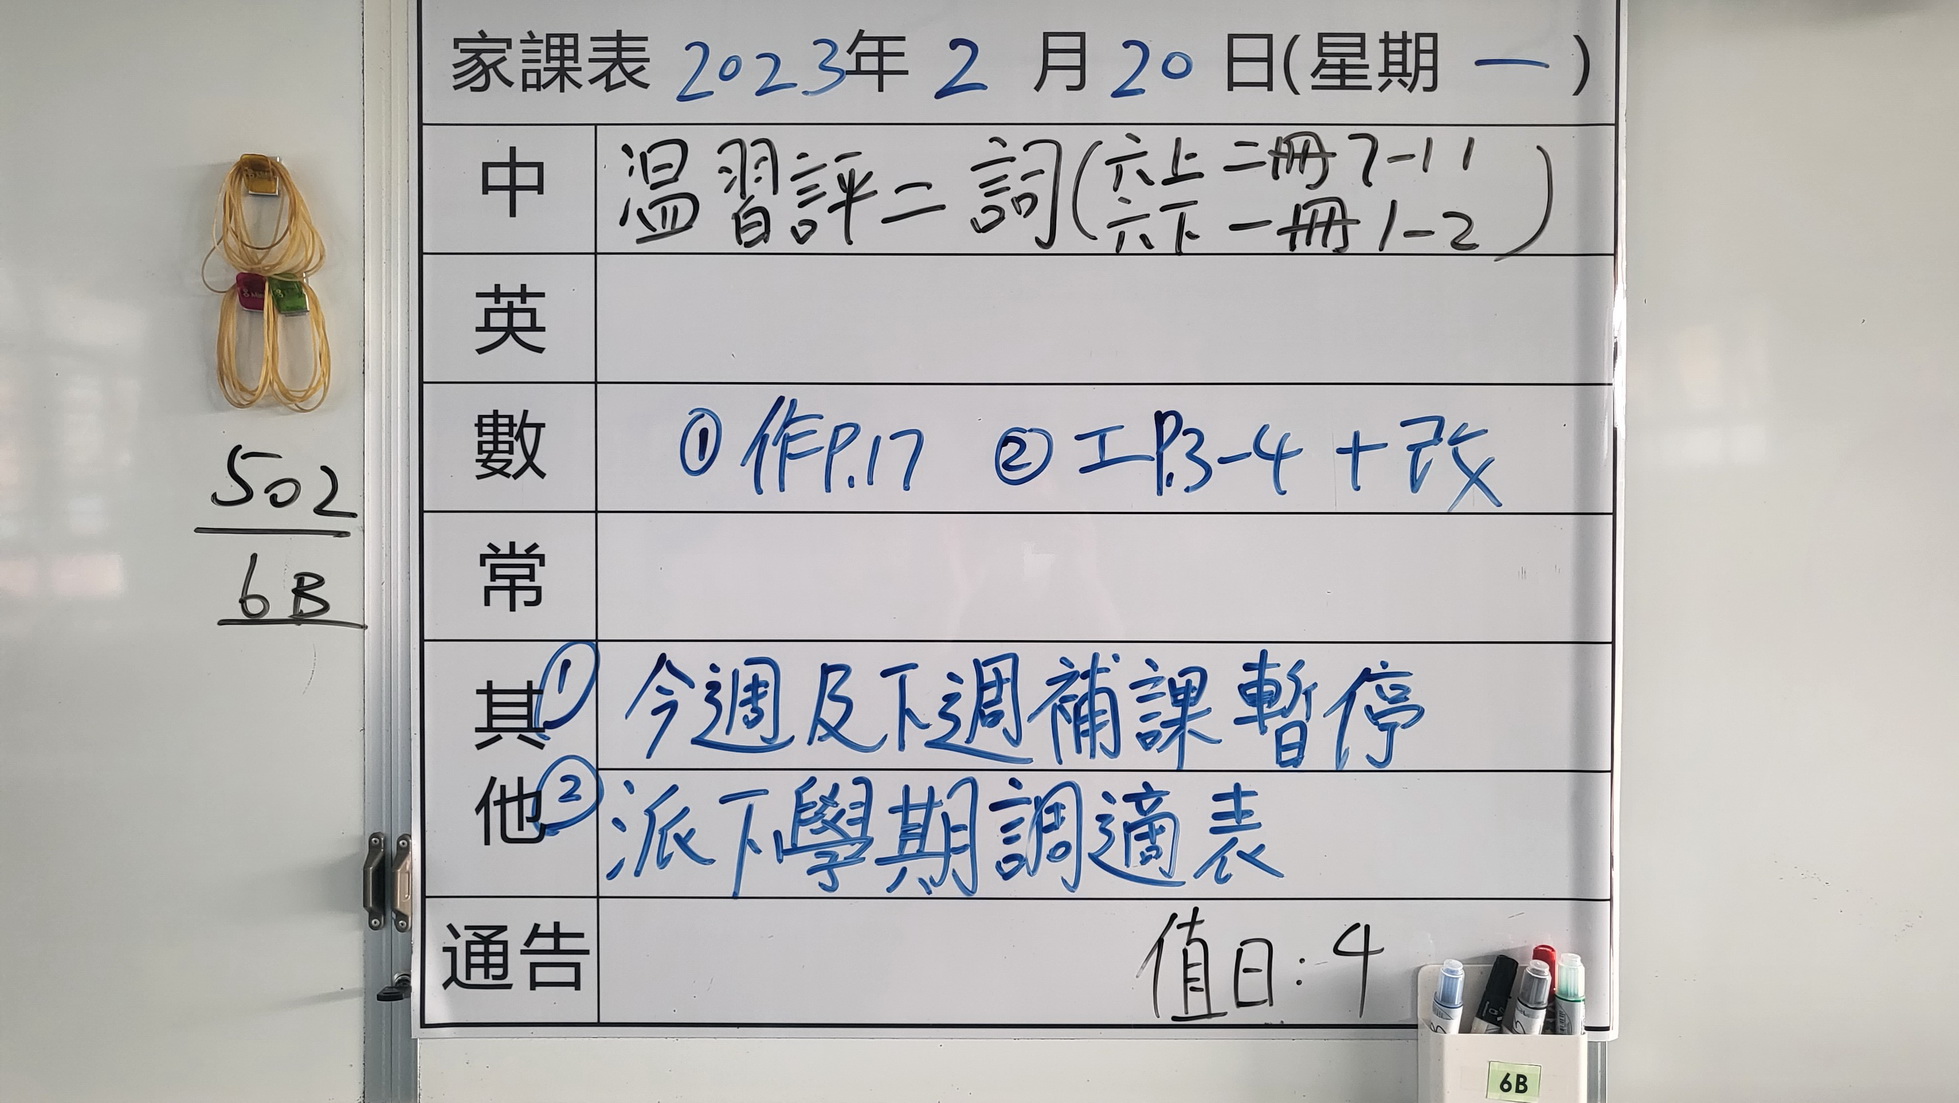 家課表 2023年 2 月 20 日(星期 一 )
中 温習評二 詞(六上 二冊 7-11
六下 一冊 1-2)
英
數 ① 作P.17 ② 工P.3-4 + 改
常
其他 ① 今週及下週補課暫停
② 派下學期調適表
通告 值日:4
502
6B
6B